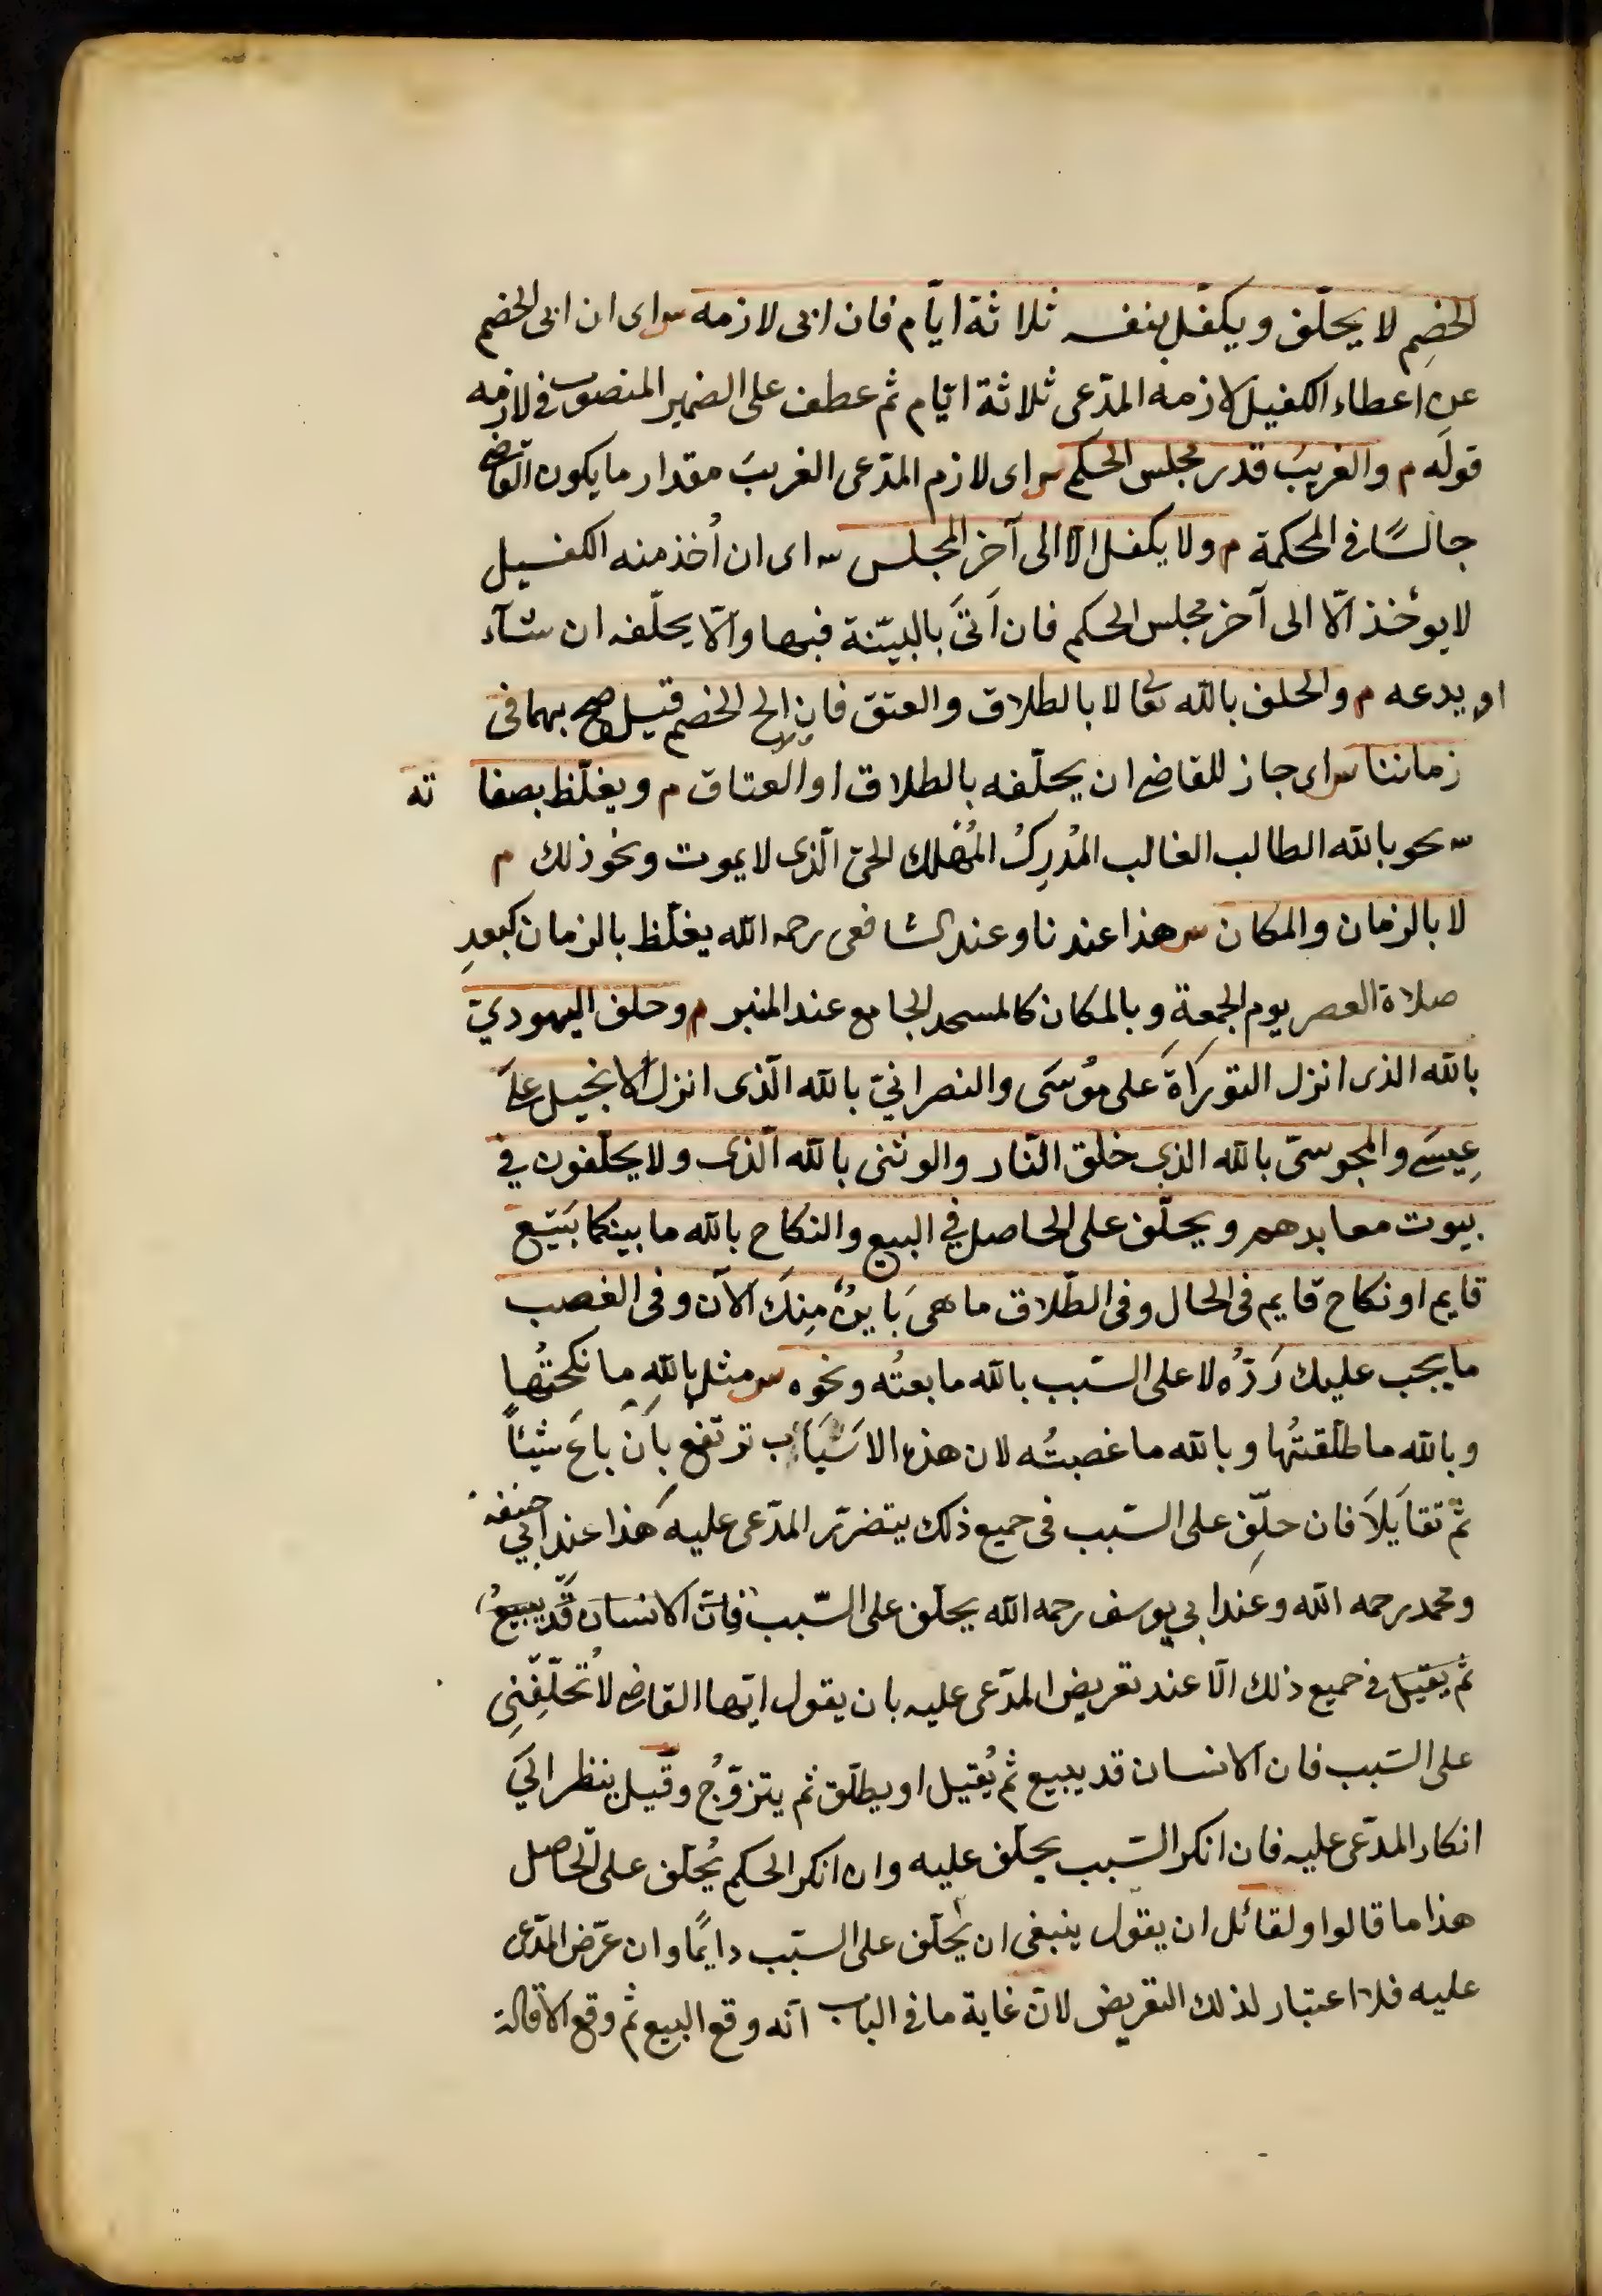 الخصم لا يحلّف ويكفّل بنفسه ثلاثة ايّام فان ابى لازمه س اى ان ابى الخصم
عن اعطاء الكفيل لازمه المدّعى ثلاثة ايّام ثم عطف على الضمير المنصوب فى لازمه
قولَه م والغريبَ قدر مجلس الحكم س اى لازم المدّعى الغريبَ مقدار ما يكون القاضى
جالسًا فى المحكمة م ولا يكفل الّا الى آخر المجلس س اى ان اُخذ منه الكفيل
لا يوخذ الّا الى آخر مجلس الحكم فان اَتَى بالبيّنة فبها والّا يحلّفه ان شآء
او يدعه م والحلف بالله تعالى لا بالطلاق والعتق فان الح الخصم قيل صح بهما فى
زماننا س اى جاز للقاضى ان يحلّفه بالطلاق او العتاق م ويغلّظ بصفا ته
س نحو بالله الطالب الغالب المُدرِكُ المُهْلك الحىّ الّذى لا يموت ونحو ذلك م
لا بالزمان والمكان س هذا عندنا وعند الشافعى رحمه الله يغلّظ بالزمان كبعدِ
صلاة العصر يوم الجمعةِ وبالمكان كالمسجد الجامع عند المنبر م وحلف اليهوديّ
بالله الذى انزل التورَاةَ على مُوسَى والنصرانيّ بالله الّذى انزل الانجيل على
عِيسَى والمجوسىّ بالله الذى خلق النّار والوثنى بالله الّذى ولا يحلّفون فى
بيوت معابدهم ويحلّف على الحاصل فى البيع والنكاح بالله ما بينكما بَيَع
قايم او نكاح قايم فى الحال وفى الطّلاق ما هىَ بَاينٌ مِنكَ الآن وفى الغصب
ما يجب عليك رَدّهُ لا على السّبب بالله ما بعتُه ونحوه س مثل باللهِ ما نكحتُها
وبالله ما طلّقتُها وبالله ما غصبتُه لان هذه الاسبَاب ترتفع بِاَن باعَ شيئاً
ثمّ تقايَلاَ فان حلّف على السّبب فى جميع ذلك يتضرّر المدّعى عليه هَذا عند ابي حنيفة
ومحمد رحمه الله وعند ابي يوسف رحمه الله يحلّف على السّبب فانّ الانسان قد يبيعُ
ثم يقيل فى جميع ذلك الّا عند تعريض المدّعى عليه بان يقول ايّها القاضى لا تُحلّفنِى
على السّبب فان الانسان قد يبيع ثم يُقيل او يطلّق ثم يتزوّجُ وقيل ينظر الىَ
انكار المدّعى عليه فان انكر السّبب يحلّف عليه وان انكر الحكم يُحلّف على الحاصل
هذا ما قالوا ولقائل ان يقول ينبغى ان يُحلّف على السّبب دايمًا وان عرّض المدّعى
عليه فلا اعتبار لذلك التعريض لانّ غاية ما فى الباب انّه وقع البيع ثم وقع الاقالة